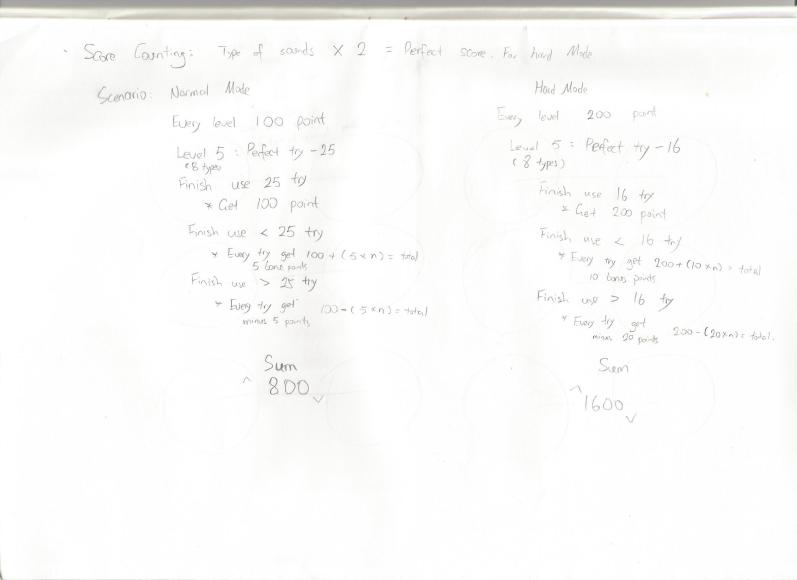 Score Counting: Type of sounds × 2 = Perfect score. For hard Mode
Scenario: Normal Mode
Every level 100 point
Level 5 : Perfect try - 25
(8 types
Finish use 25 try
* Get 100 point
Finish use < 25 try
* Every try get 100 + (5 × n) = total
5 bonus points
Finish use > 25 try
* Every try get 100 - (5 × n) = total
minus 5 points
Sum
^ 800 v
Hard Mode
Every level 200 point
Level 5 : Perfect try - 16
(8 types)
Finish use 16 try
* Get 200 point
Finish use < 16 try
* Every try get 200 + (10 × n) = total
10 bonus points
Finish use > 16 try
* Every try get 200 - (20 × n) = total.
minus 20 points
Sum
^ 1600 v